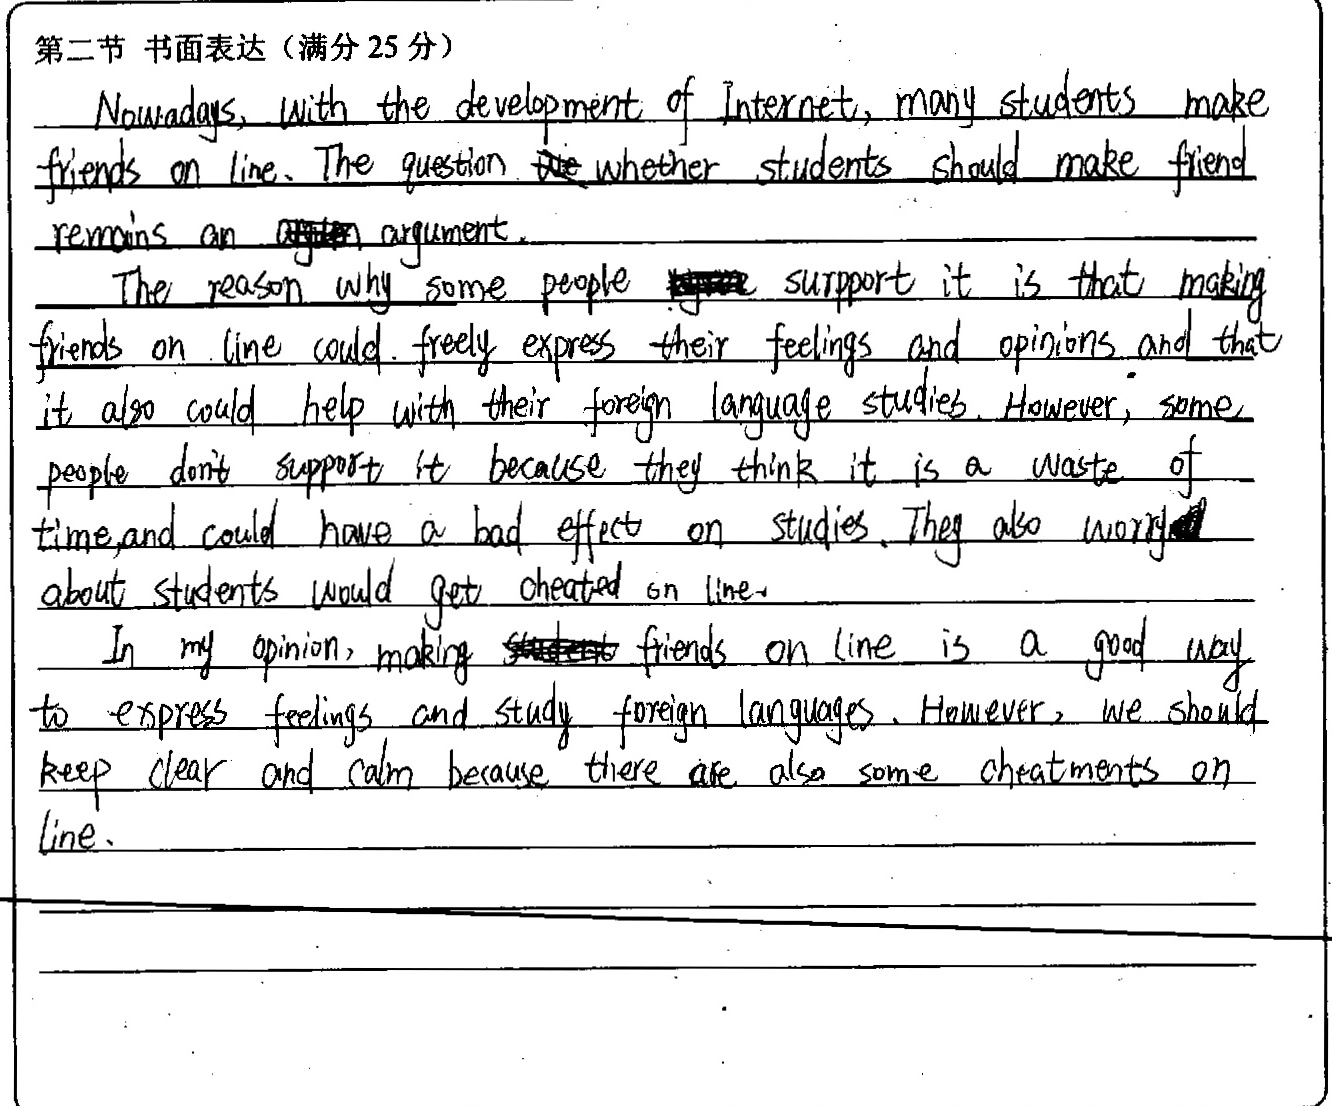 第二节 书面表达（满分 25 分）
Nowadays, with the development of Internet, many students make
friends on line. The question whether students should make friend
remains an argument.
The reason why some people surpport it is that making
friends on line could freely express their feelings and opinions and that
it also could help with their foreign language studies. However, some
people don't support it because they think it is a waste of
time, and could have a bad effect on studies. They also worry
about students would get cheated on line.
In my opinion, making friends on line is a good way
to express feelings and study foreign languages. However, we should
keep clear and calm because there are also some cheatments on
line.